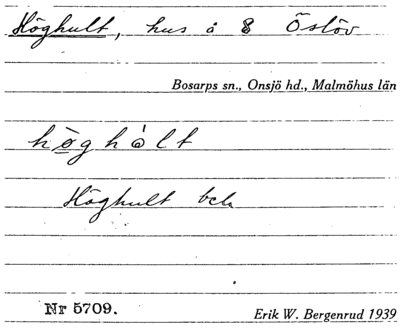 Höghult, hus å 8 Östöv
Bosarps sn., Onsjö hd., Malmöhus län
høghålt
Höghult bck
Nr 5709.
Erik W. Bergenrud 1939